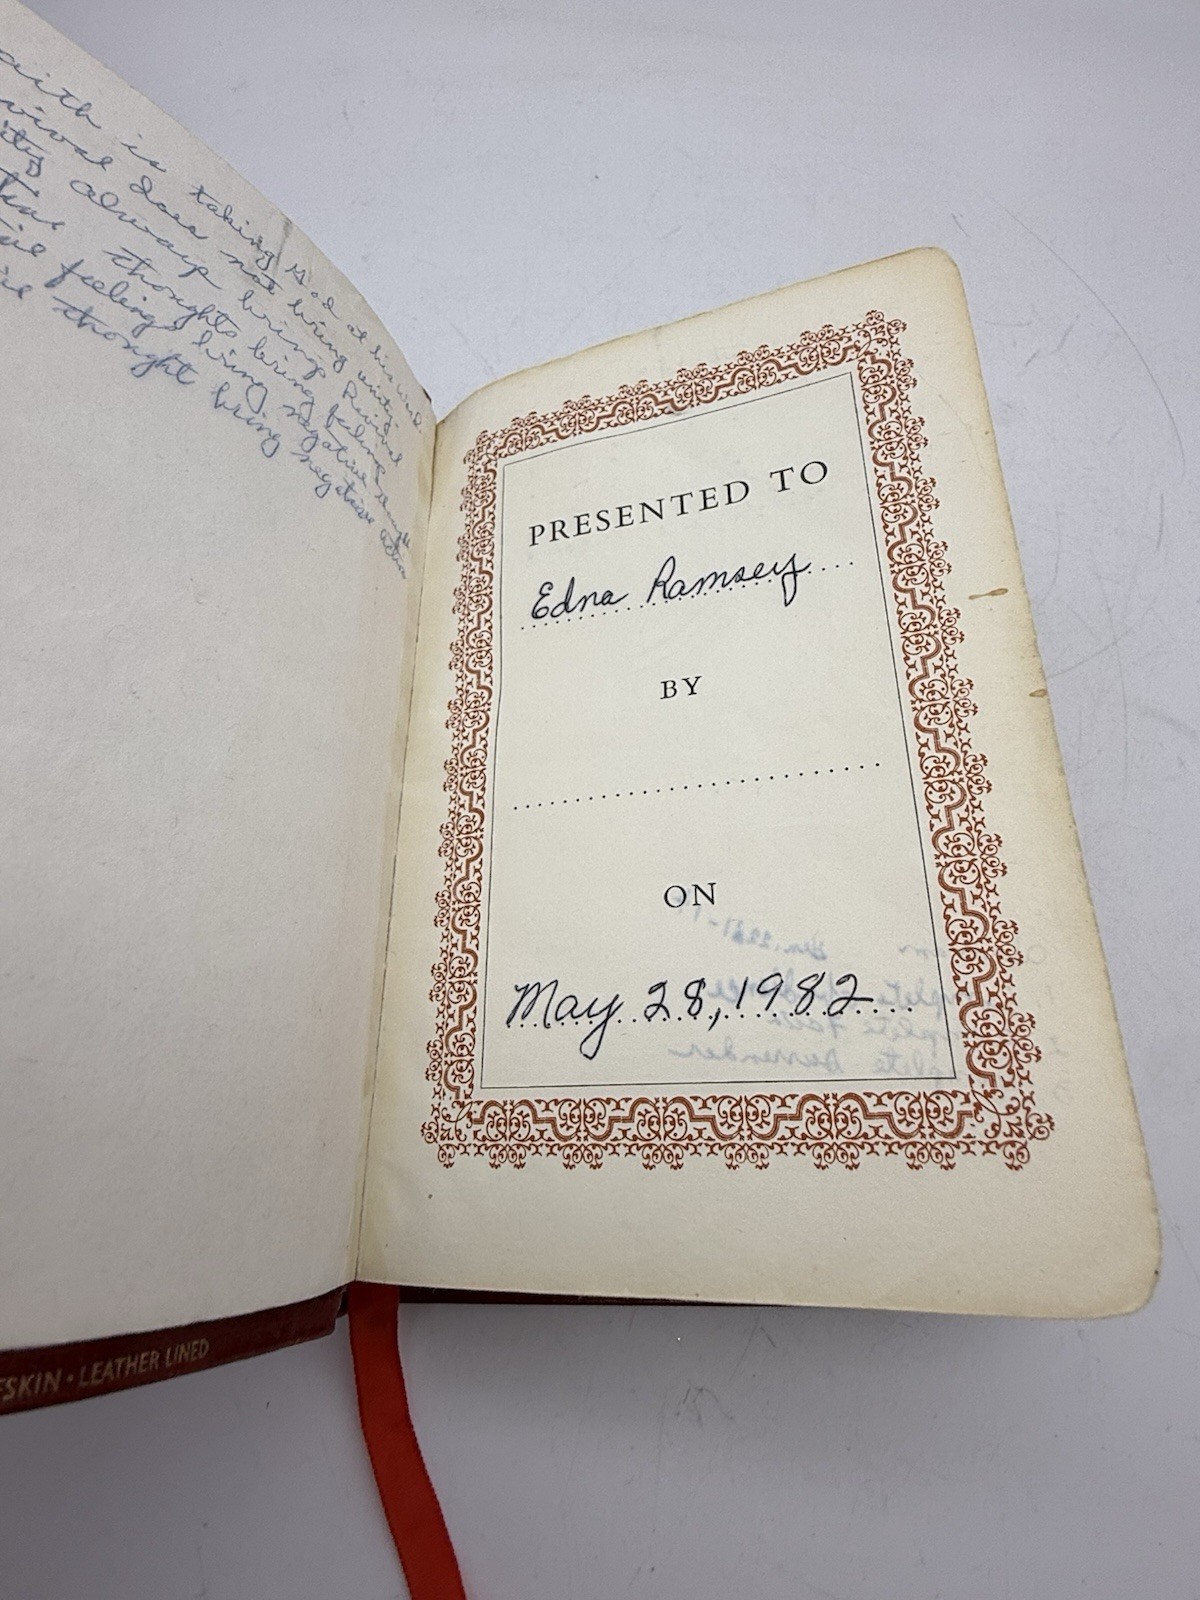 aith is taking God at his word
vival does not bring unity
ity always brings Revival
tive thoughts bring feeling
feelings bring negative
thought bring negative
PRESENTED TO
Edna Ramsey
BY
ON
May 28, 1982
Surrender
SKIN • LEATHER LINED